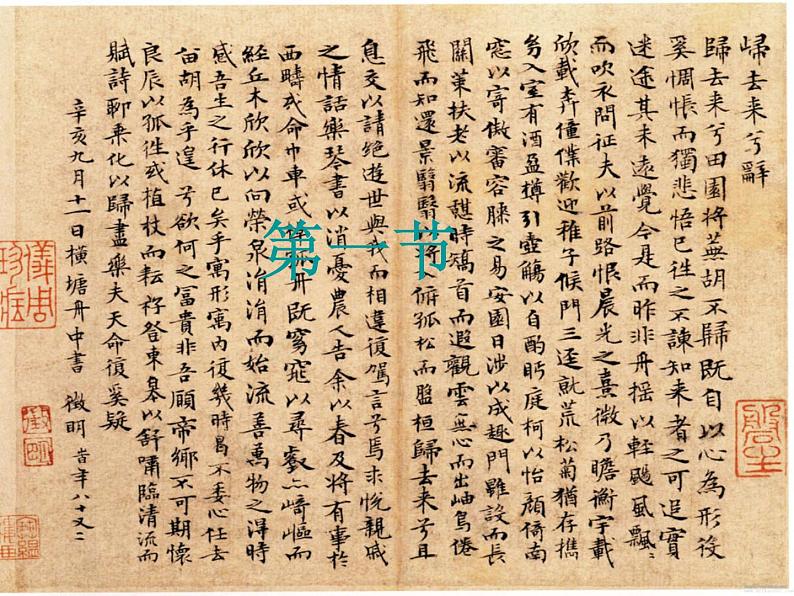 歸去来兮辭
歸去来兮田園将蕪胡不歸既自以心為形役
奚惆悵而獨悲悟已往之不諫知来者之可追實
迷途其未遠覺今是而昨非舟揺以輕颺風飄〻
而吹衣問征夫以前路恨晨光之熹微乃瞻衡宇載
欣載奔僮僕歡迎稚子候門三逕就荒松菊猶存攜
幼入室有酒盈樽引壺觴以自酌眄庭柯以怡顔倚南
窓以寄傲審容膝之易安園日涉以成趣門雖設而長
關策扶老以流憩時矯首而遐觀雲無心而出岫鳥倦
飛而知還景翳翳以将俯孤松而盤桓歸去来兮且
息交以請絶遊世與我而相違復駕言兮焉求悦親戚
之情話樂琴書以消憂農人告余以春及将有事於
西疇或命巾車或棹孤舟既窈窕以尋壑亦崎嶇而
經丘木欣欣以向榮泉涓涓而始流善萬物之得時
感吾生之行休已矣乎寓形寓内復幾時曷不委心任去
留胡為乎遑兮欲何之冨貴非吾願帝鄉不可期懷
良辰以孤往或植杖而耘籽登東皋以舒嘯臨清流而
賦詩聊乘化以歸盡樂夫天命復奚疑
辛亥九月十一日橫塘舟中書 徵明 昔年八十又二
第一节
徵明